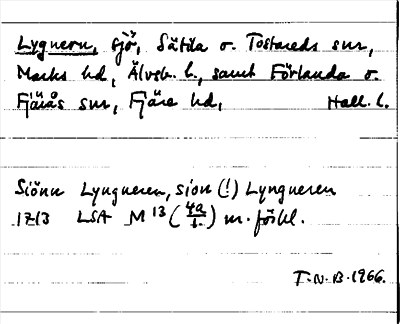 Lygnern, sjö, Sätila o. Tostareds snr,
Marks hd, Älvsb. l., samt Förlanda o.
Fjärås snr, Fjäre hd, Hall. l.
Siönn Lyngneren, sion (!) Lyngneren
1713 LSA M 13 (4a/1-) m. förkl.
T.N.B. 1966.